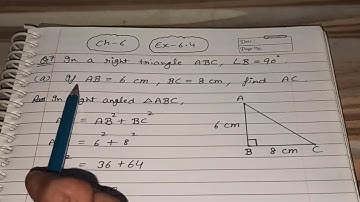 Ch-6 Ex-6.4
Date:
Page No.
Q7 In a right triangle ABC, ∠B = 90°
(a) If AB = 6 cm, BC = 8 cm, find AC
Ans In right angled △ABC,
= AB² + BC²
= 6² + 8²
= 36 + 64
A
6 cm
B 8 cm C